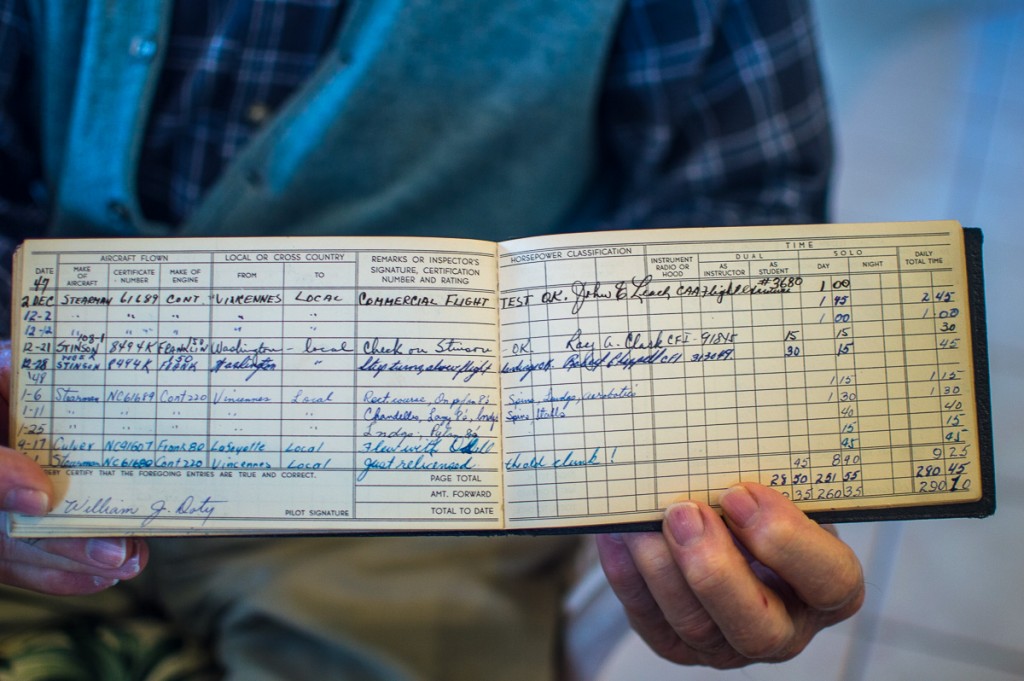 AIRCRAFT FLOWN LOCAL OR CROSS COUNTRY REMARKS OR INSPECTOR'S SIGNATURE, CERTIFICATION NUMBER AND RATING HORSEPOWER CLASSIFICATION TIME
DATE MAKE OF AIRCRAFT CERTIFICATE NUMBER MAKE OF ENGINE FROM TO INSTRUMENT RADIO OR HOOD DUAL SOLO DAILY TOTAL TIME
47 AS INSTRUCTOR AS STUDENT DAY NIGHT
2 DEC STEARMAN 61689 CONT VINCENNES LOCAL COMMERCIAL FLIGHT TEST OK. John E Leach CAA Flight #3680 1 00
12-2 " " " 1 45 2 45
12-12 " " " " 1 00 1 00
108-1 150 30
12-21 STINSON 8494K FRANKLIN Washington - local Check on Stinson - OK. Ray A. Clark CFI - 91845 15 15 45
12-28 STINSON 8494K 150 FRANK Washington " Steep turns, slow flight CFI 30 15
'48 1 15 1 15
1-6 Stearman NC61689 Cont 220 Vincennes Local Rect. course, On pylon 8's Spins, Lndgs, aerobatics 1 30 1 30
1-11 " " " " Chandelles, Lazy 8's, lndgs Spins Stalls 40 40
1-25 " " " " Lndgs. Pylon 8's 15 15
4-17 Culver NC91607 Frank 80 Lafayette Local Flew with Odell 45 45
Stearman NC61680 Cont 220 Vincennes Local Just relicensed the old clunk!
I HEREBY CERTIFY THAT THE FOREGOING ENTRIES ARE TRUE AND CORRECT. PAGE TOTAL 45 8 40 9 25
AMT. FORWARD 28 50 251 55 280 45
William J. Doty PILOT SIGNATURE TOTAL TO DATE 35 260 35 290 10